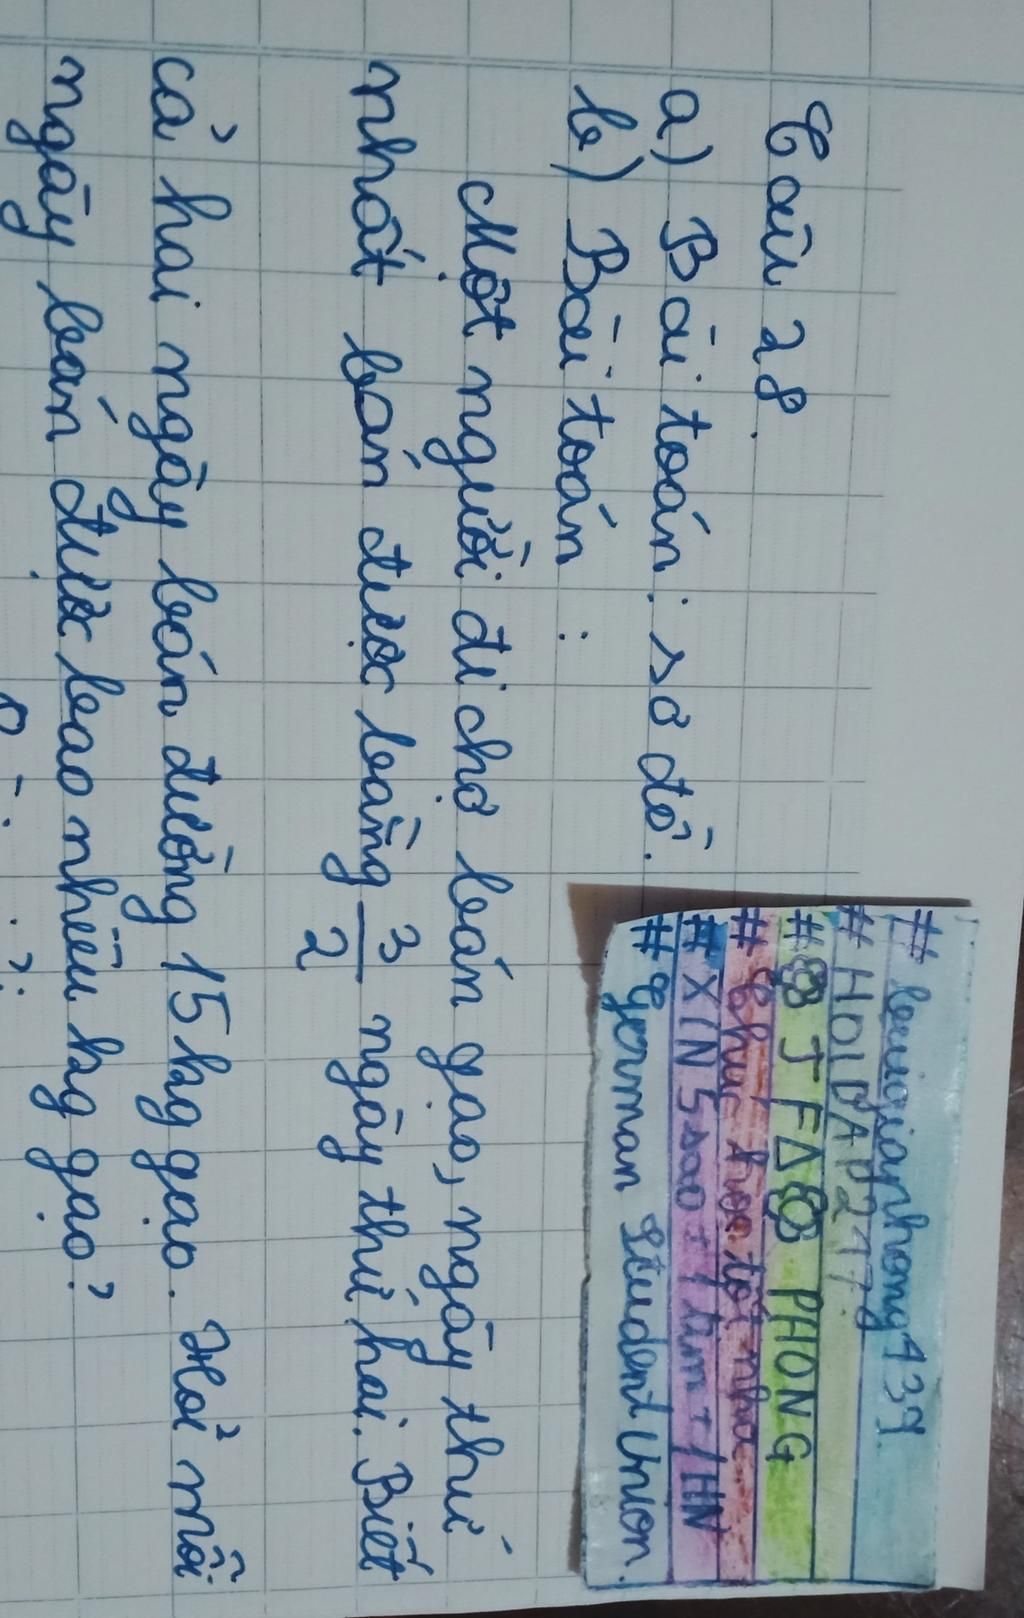 Câu 28.
a) Bài toán: sơ đồ.
b) Bài toán:
Một người đi chợ bán gạo, ngày thứ
nhất bán được bằng 3/2 ngày thứ hai. Biết
cả hai ngày bán đường 15 kg gạo. Hỏi mỗi
ngày bán được bao nhiêu kg gạo?
# leugianhong439
# HOIDAP247.
# J F PHONG
# Chúc học tốt nha
# XIN 5 sao + 1 tim + 1 HN
# German Student Union.